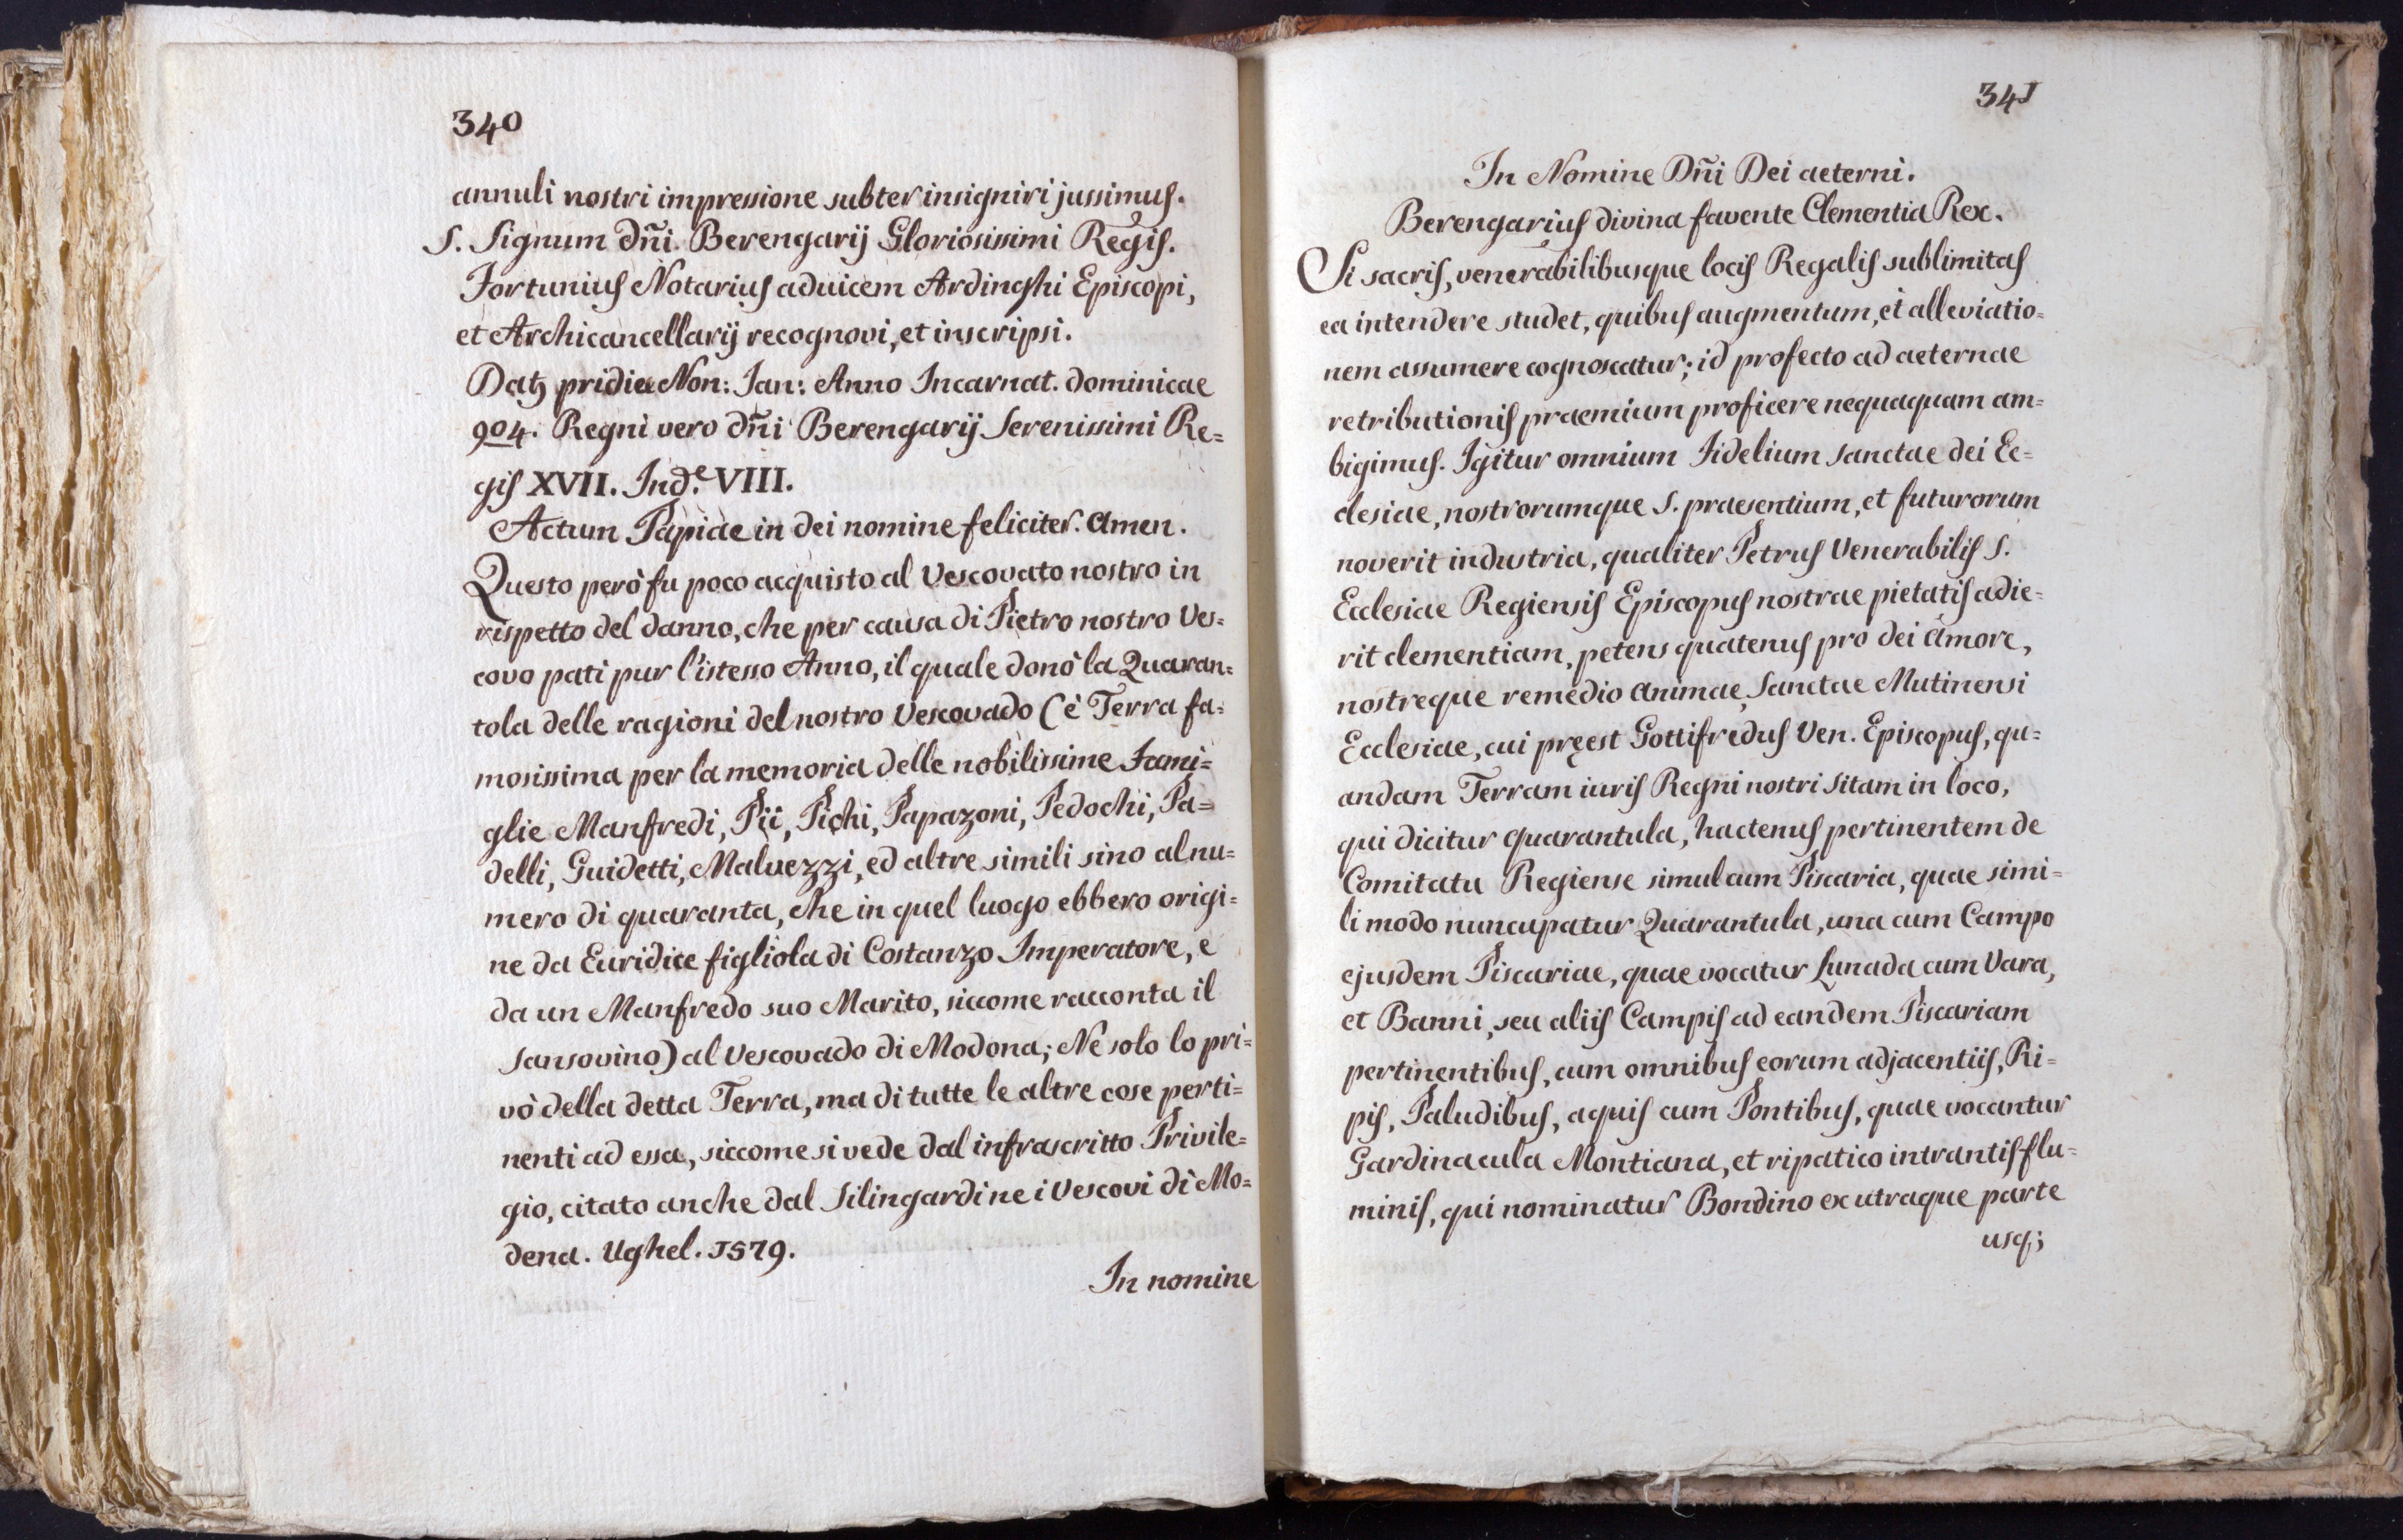 340
annuli nostri impressione subter insigniri jussimus.
S. Signum dñi Berengarij Gloriosissimi Regis.
Fortunius Notarius aduicem Ardinghi Episcopi,
et Archicancellarij recognovi, et inscripsi.
Datȝ pridie Non: Ian: Anno Incarnat. dominicae
904. Regni vero dñi Berengarij Serenissimi Re=
gis XVII. Ind.e VIII.
Actum Papiae in dei nomine feliciter. Amen.
Questo però fu poco acquisto al Vescovato nostro in
rispetto del danno, che per causa di Pietro nostro Ves=
covo pati pur l'istesso Anno, il quale donò la Quaran=
tola delle ragioni del nostro Vescovado (è Terra fa=
mosissima per la memoria delle nobilissime Fami=
glie Manfredi, Pii, Pichi, Papazoni, Pedochi, Pa=
delli, Guidetti, Maluezzi, ed altre simili sino al nu=
mero di quaranta, che in quel luogo ebbero origi=
ne da Euridice figliola di Costanzo Imperatore, e
da un Manfredo suo Marito, siccome racconta il
Sansovino) al Vescovado di Modona; Nè solo lo pri=
vò della detta Terra, ma di tutte le altre cose perti=
nenti ad essa, siccome si vede dal infrascritto Privile=
gio, citato anche dal Silingardi ne i Vescovi di Mo=
dena. Ughel. 1579.
In nomine
341
In Nomine Dñi Dei aeterni.
Berengarius divina favente Clementia Rex.
Si sacris, venerabilibusque locis Regalis sublimitas
ea intendere studet, quibus augmentum, et alleviatio=
nem assumere cognoscatur; id profecto ad aeternae
retributionis praemium proficere nequaquam am=
bigimus. Igitur omnium Fidelium Sanctae dei Ec=
clesiae, nostrorumque S. praesentium, et futurorum
noverit industria, qualiter Petrus Venerabilis S.
Ecclesiae Regiensis Episcopus nostrae pietatis adie=
rit clementiam, petens quatenus pro dei Amore,
nostreque remedio Animae, Sanctae Mutinensi
Ecclesiae, cui pręest Gottifredus Ven. Episcopus, qu=
andam Terram iuris Regni nostri Sitam in loco,
qui dicitur quarantula, hactenus pertinentem de
Comitatu Regiense simul cum Piscaria, quae simi=
li modo nuncupatur Quarantula, una cum Campo
ejusdem Piscariae, quae vocatur Lunada cum Vara,
et Banni, seu aliis Campis ad eandem Piscariam
pertinentibus, cum omnibus eorum adjacentiis, Ri=
pis, Paludibus, aquis cum Pontibus, quae vocantur
Gardinacula Montiana, et ripatico intrantis flu=
minis, qui nominatur Bondino ex utraque parte
usq;